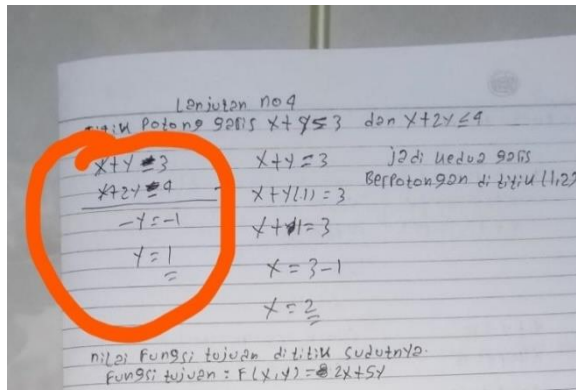 Lanjutan no 4
titik Potong garis x+y≤3 dan x+2y≤4
x+y=3
x+2y=4
-y=-1
y=1
x+y=3
x+y(1)=3
x+1=3
x=3-1
x=2
jadi kedua garis
Berpotongan di titik (1,2)
nilai Fungsi tujuan di titik sudutnya.
Fungsi tujuan : F(x,y) = 2x+5y